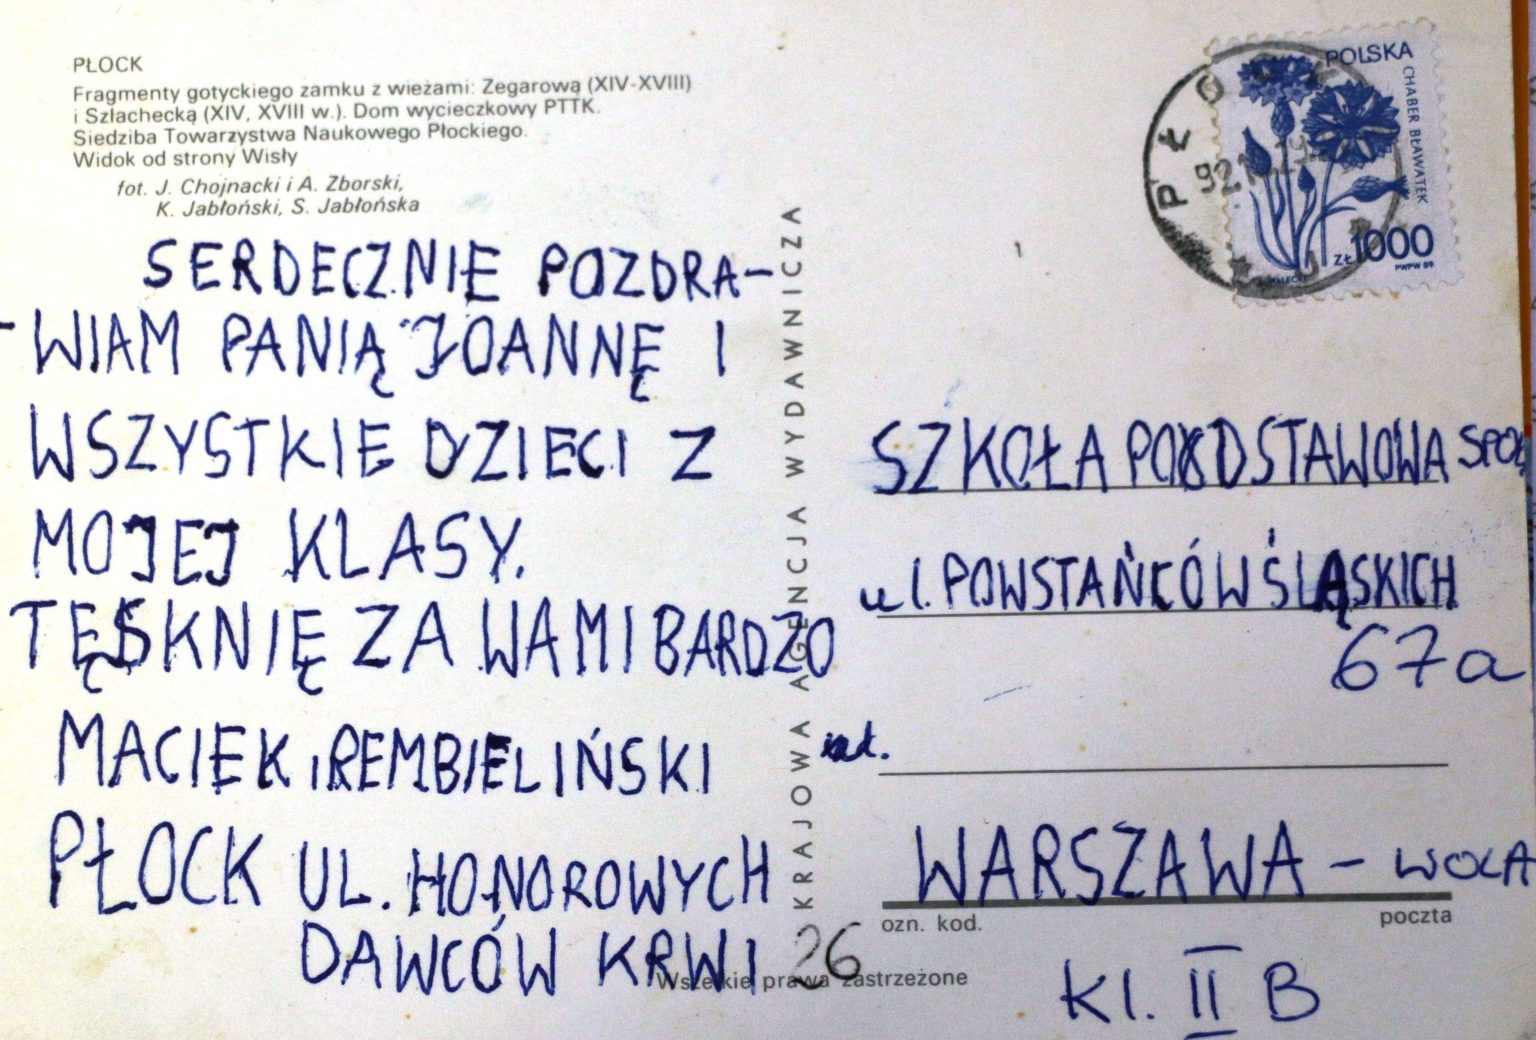 PŁOCK
Fragmenty gotyckiego zamku z wieżami: Zegarową (XIV-XVIII)
i Szlachecką (XIV, XVIII w.). Dom wycieczkowy PTTK.
Siedziba Towarzystwa Naukowego Płockiego.
Widok od strony Wisły
fot. J. Chojnacki i A. Zborski,
K. Jabłoński, S. Jabłońska
SERDECZNIE POZDRA-
-WIAM PANIĄ JOANNĘ I
WSZYSTKIE DZIECI Z
MOJEJ KLASY.
TĘSKNIĘ ZA WAMI BARDZO
MACIEK REMBIELIŃSKI
PŁOCK UL. HONOROWYCH
DAWCÓW KRWI 26
KRAJOWA AGENCJA WYDAWNICZA
Wszelkie prawa zastrzeżone
PŁOCK
POLSKA
CHABER BŁAWATEK
ZŁ 1000
PWPW 89
SZKOŁA PODSTAWOWA SPOŁ
ul. POWSTAŃCÓW ŚLĄSKICH
67a
WARSZAWA - WOLA
ozn. kod. poczta
Kl. II B